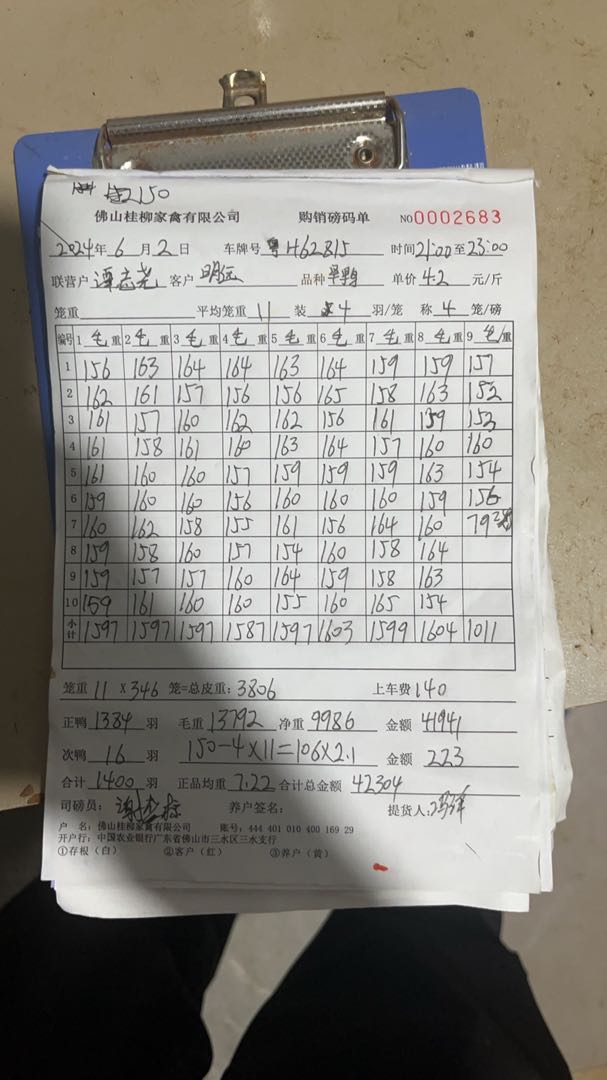 150
佛山桂柳家禽有限公司 购销磅码单 NO0002683
2024年6月2日 车牌号 粤H62815 时间21:00至23:00
联营户 谭志尧 客户 明记 品种 单价 4.2 元/斤
笼重 平均笼重 11 装 4 羽/笼 称 4 笼/磅
编号 1 毛重 2 毛重 3 毛重 4 毛重 5 毛重 6 毛重 7 毛重 8 毛重 9 毛/重
1 156 163 164 164 163 164 159 159 157
2 162 161 157 156 156 165 158 163 152
3 161 157 160 162 162 156 161 159 153
4 161 158 161 160 163 164 157 160 160
5 161 160 160 157 159 159 159 163 154
6 159 160 160 156 160 160 160 159 156
7 160 162 158 155 161 156 164 160 79 2笼
8 159 158 160 157 154 160 158 164
9 159 157 157 160 164 159 158 163
10 159 161 160 160 155 160 165 154
小计 1597 1597 1597 1587 1597 1603 1599 1604 1011
笼重 11 X 346 笼=总皮重: 3806 上车费 140
正鸭 1384 羽 毛重 13792 净重 9986 金额 41941
次鸭 16 羽 150-4×11=106×2.1 金额 223
合计 1400 羽 正品均重 7.22 合计总金额 42304
司磅员: 养户签名: 提货人:
户 名: 佛山桂柳家禽有限公司 账号: 444 401 010 400 169 29
开户行: 中国农业银行广东省佛山市三水区三水支行
①存根(白) ②客户(红) ③养户(黄)